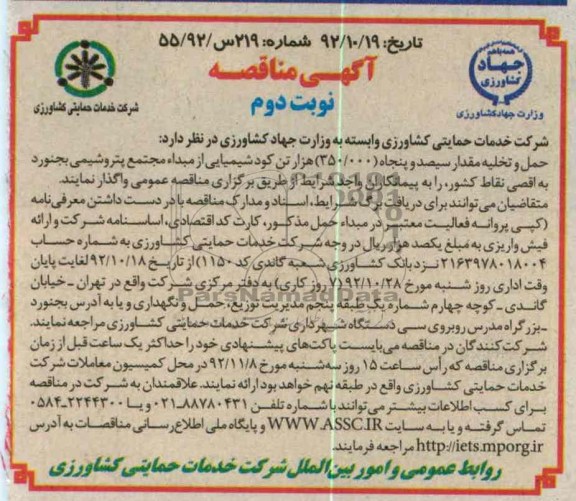 تاریخ: ۹۲/۱۰/۱۹ شماره: ۲۱۹س/۵۵/۹۲
همه با هم
جهاد
کشاورزی
وزارت جهاد کشاورزی
آگهی مناقصه
نوبت دوم
شرکت خدمات حمایتی کشاورزی
شرکت خدمات حمایتی کشاورزی وابسته به وزارت جهاد کشاورزی در نظر دارد:
حمل و تخلیه مقدار سیصد و پنجاه (۳۵۰/۰۰۰) هزار تن کود شیمیایی از مبداء مجتمع پتروشیمی بجنورد
به اقصی نقاط کشور، را به پیمانکاران واجد شرایط از طریق برگزاری مناقصه عمومی واگذار نمایند.
متقاضیان می‌توانند برای دریافت برگ شرایط، اسناد و مدارک مناقصه با در دست داشتن معرفی‌نامه
(کپی پروانه فعالیت معتبر در مبداء حمل مذکور، کارت کد اقتصادی، اساسنامه شرکت و ارائه
فیش واریزی به مبلغ یکصد هزار ریال در وجه شرکت خدمات حمایتی کشاورزی به شماره حساب
۲۱۶۳۹۷۸۰۱۸۰۰۴ نزد بانک کشاورزی شعبه گاندی کد ۱۱۵۰) از تاریخ ۹۲/۱۰/۱۸ لغایت پایان
وقت اداری روز شنبه مورخ ۹۲/۱۰/۲۸ (۷ روز کاری) به دفتر مرکزی شرکت واقع در تهران ـ خیابان
گاندی ـ کوچه چهارم شماره یک طبقه پنجم مدیریت توزیع، حمل و نگهداری و یا به آدرس بجنورد
ـ بزرگراه مدرس روبروی سی دستگاه شهرداری شرکت خدمات حمایتی کشاورزی مراجعه نمایند.
شرکت کنندگان در مناقصه می‌بایست پاکت‌های پیشنهادی خود را حداکثر یک ساعت قبل از زمان
برگزاری مناقصه که رأس ساعت ۱۵ روز سه‌شنبه مورخ ۹۲/۱۱/۸ در محل کمیسیون معاملات شرکت
خدمات حمایتی کشاورزی واقع در طبقه نهم خواهد بود ارائه نمایند. علاقمندان به شرکت در مناقصه
برای کسب اطلاعات بیشتر می‌توانند با شماره تلفن ۸۸۷۸۰۴۳۱-۰۲۱ و یا ۲۲۴۴۳۰۰-۰۵۸۴
تماس گرفته و یا به سایت WWW.ASSC.IR و پایگاه ملی اطلاع‌رسانی مناقصات به آدرس
http://iets.mporg.ir مراجعه فرمایند.
روابط عمومی و امور بین‌الملل شرکت خدمات حمایتی کشاورزی
ParsNamadData